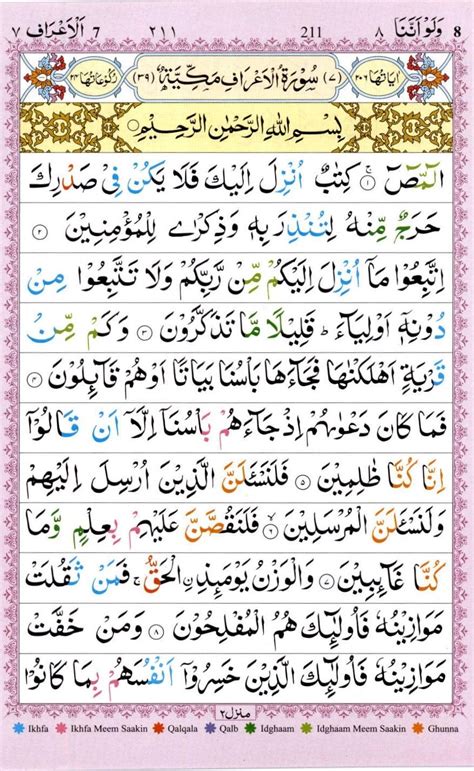 ٧ اَلْاَعْرَاف 7 ٢١١ 211 وَلَوْ اَنَّنَا ٨ 8
اٰيَاتُهَا ٢٠٦ (٧) سُوْرَةُ الْاَعْرَافِ مَكِّيَّةٌ (٣٩) رُكُوْعَاتُهَا ٢٤
بِسْمِ اللّٰهِ الرَّحْمٰنِ الرَّحِيْمِ
الٓمّٓصٓ ۚ‏ ١ كِتٰبٌ اُنْزِلَ اِلَيْكَ فَلَا يَكُنْ فِىْ صَدْرِكَ
حَرَجٌ مِّنْهُ لِتُنْذِرَ بِهٖ وَذِكْرٰى لِلْمُؤْمِنِيْنَ ٢
اِتَّبِعُوْا مَاۤ اُنْزِلَ اِلَيْكُمْ مِّنْ رَّبِّكُمْ وَلَا تَتَّبِعُوْا مِنْ
دُوْنِهٖۤ اَوْلِيَآءَ ؕ قَلِيْلًا مَّا تَذَكَّرُوْنَ ٣ وَكَمْ مِّنْ
قَرْيَةٍ اَهْلَكْنٰهَا فَجَآءَهَا بَاْسُنَا بَيَاتًا اَوْ هُمْ قَآئِلُوْنَ ٤
فَمَا كَانَ دَعْوٰىهُمْ اِذْ جَآءَهُمْ بَاْسُنَاۤ اِلَّاۤ اَنْ قَالُوْۤا
اِنَّا كُنَّا ظٰلِمِيْنَ ٥ فَلَنَسْئَلَنَّ الَّذِيْنَ اُرْسِلَ اِلَيْهِمْ
وَلَنَسْئَلَنَّ الْمُرْسَلِيْنَ ۙ ٦ فَلَنَقُصَّنَّ عَلَيْهِمْ بِعِلْمٍ وَّمَا
كُنَّا غَآئِبِيْنَ ٧ وَالْوَزْنُ يَوْمَئِذِ ۨالْحَقُّ ۚ فَمَنْ ثَقُلَتْ
مَوَازِيْنُهٗ فَاُولٰٓئِكَ هُمُ الْمُفْلِحُوْنَ ٨ وَمَنْ خَفَّتْ
مَوَازِيْنُهٗ فَاُولٰٓئِكَ الَّذِيْنَ خَسِرُوْۤا اَنْفُسَهُمْ بِمَا كَانُوْا
منزل ٢
Ikhfa Ikhfa Meem Saakin Qalqala Qalb Idghaam Idghaam Meem Saakin Ghunna